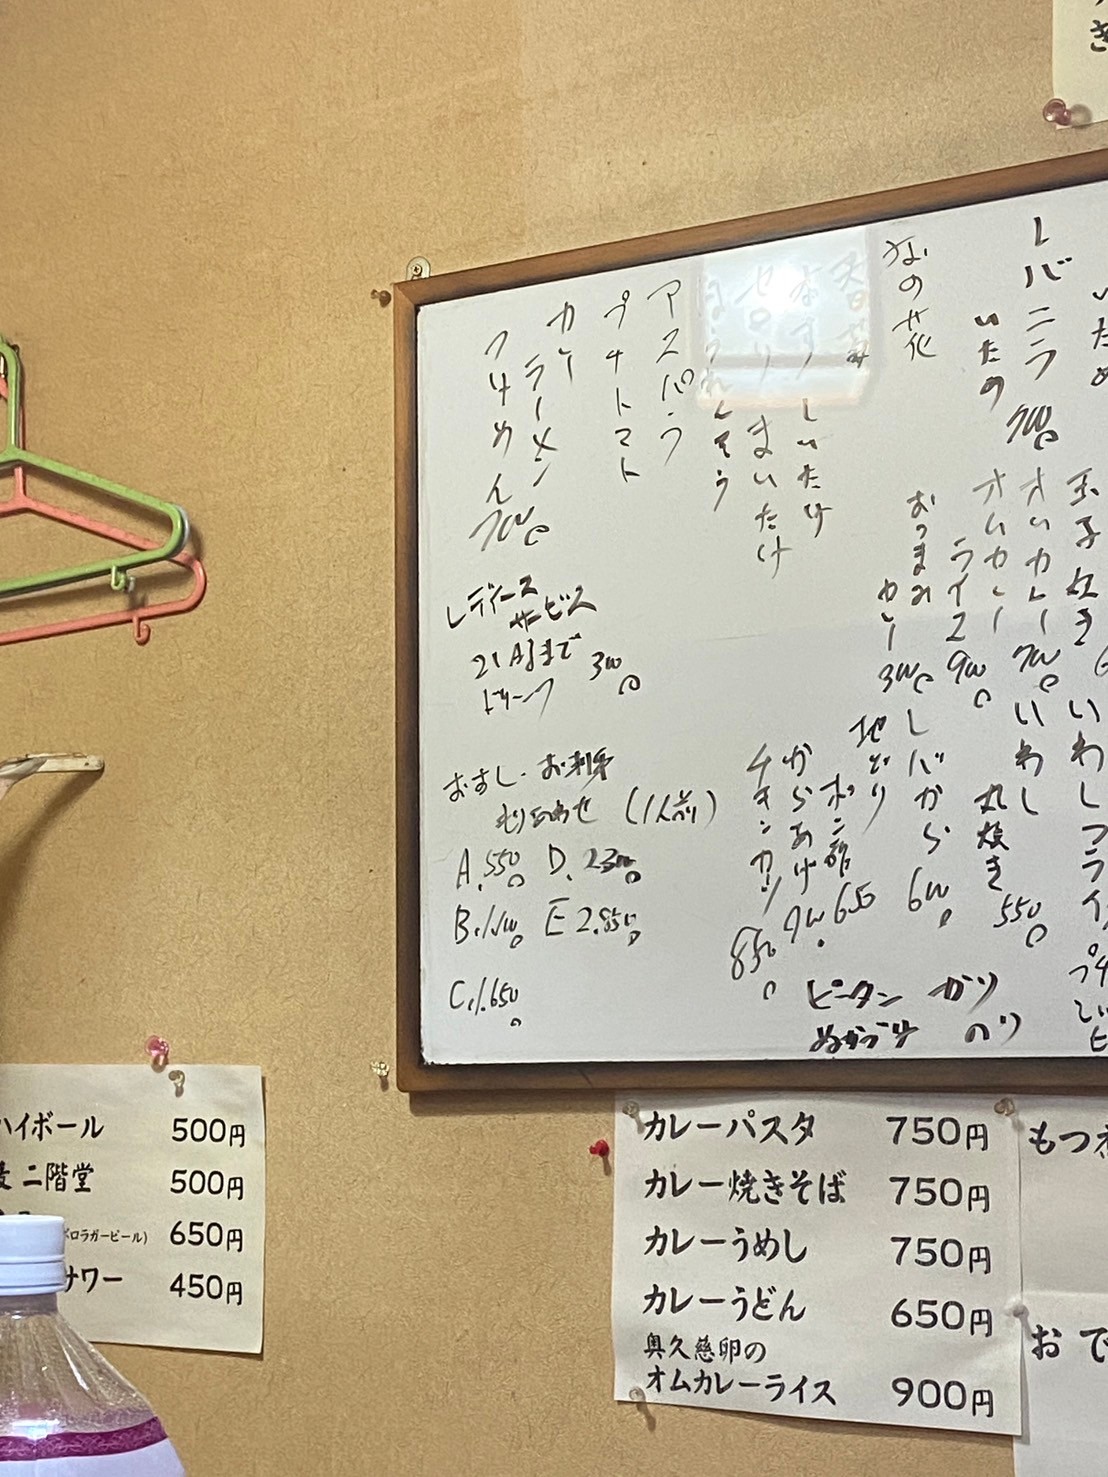 き
いため
レバニラ 700
いたの
なの花
春菊
なす しいたけ
セロリ まいたけ
ほうれんそう
アスパラ
プチトマト
カレー
ラーメン
つけめん 700
玉子焼き
オムカレー 700
オムカレー
ライス 900
おつまみ
カレー 300
レディース
サービス
21時まで
ドリンク 300
いわしフライ
いわし
丸焼き 550
レバから 600
地どり
ポン酢 650
からあげ 700
チキンカツ 850
おすし・お刺身
もりあわせ (1人前)
A. 550 D. 2300
B. E 2.850
C. 1.650
ピータン ガリ
ぬかづけ のり
ハイボール 500円
麦 二階堂 500円
ポロラガービール) 650円
サワー 450円
カレーパスタ 750円
カレー焼きそば 750円
カレーうめし 750円
カレーうどん 650円
奥久慈卵の
オムカレーライス 900円
もつ
おで